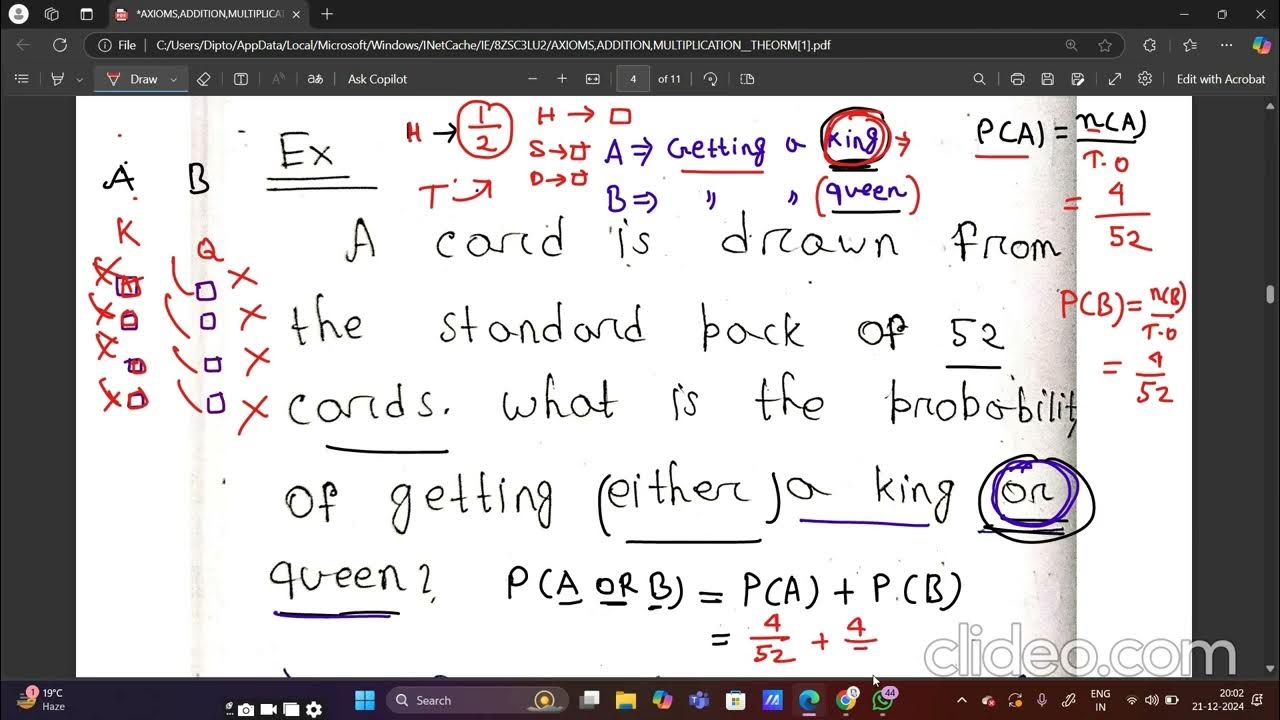 *AXIOMS,ADDITION,MULTIPLICAT
File C:/Users/Dipto/AppData/Local/Microsoft/Windows/INetCache/IE/8ZSC3LU2/AXIOMS,ADDITION,MULTIPLICATION__THEORM[1].pdf
Draw Ask Copilot 4 of 11 Edit with Acrobat
H → 1/2 H → □
T
S → □
D → □
A ⇒ Getting a king
B ⇒ " " (queen)
P(A) = n(A)/T.O
= 4/52
P(B) = n(B)/T.O
= 4/52
A B
K Q
Ex
A card is drawn from
the standard pack of 52
cards. What is the probabilit
of getting (either) a king or
queen?
P(A OR B) = P(A) + P(B)
= 4/52 + 4
clideo.com
1 19°C
Haze
Search
44
ENG
IN
20:02
21-12-2024